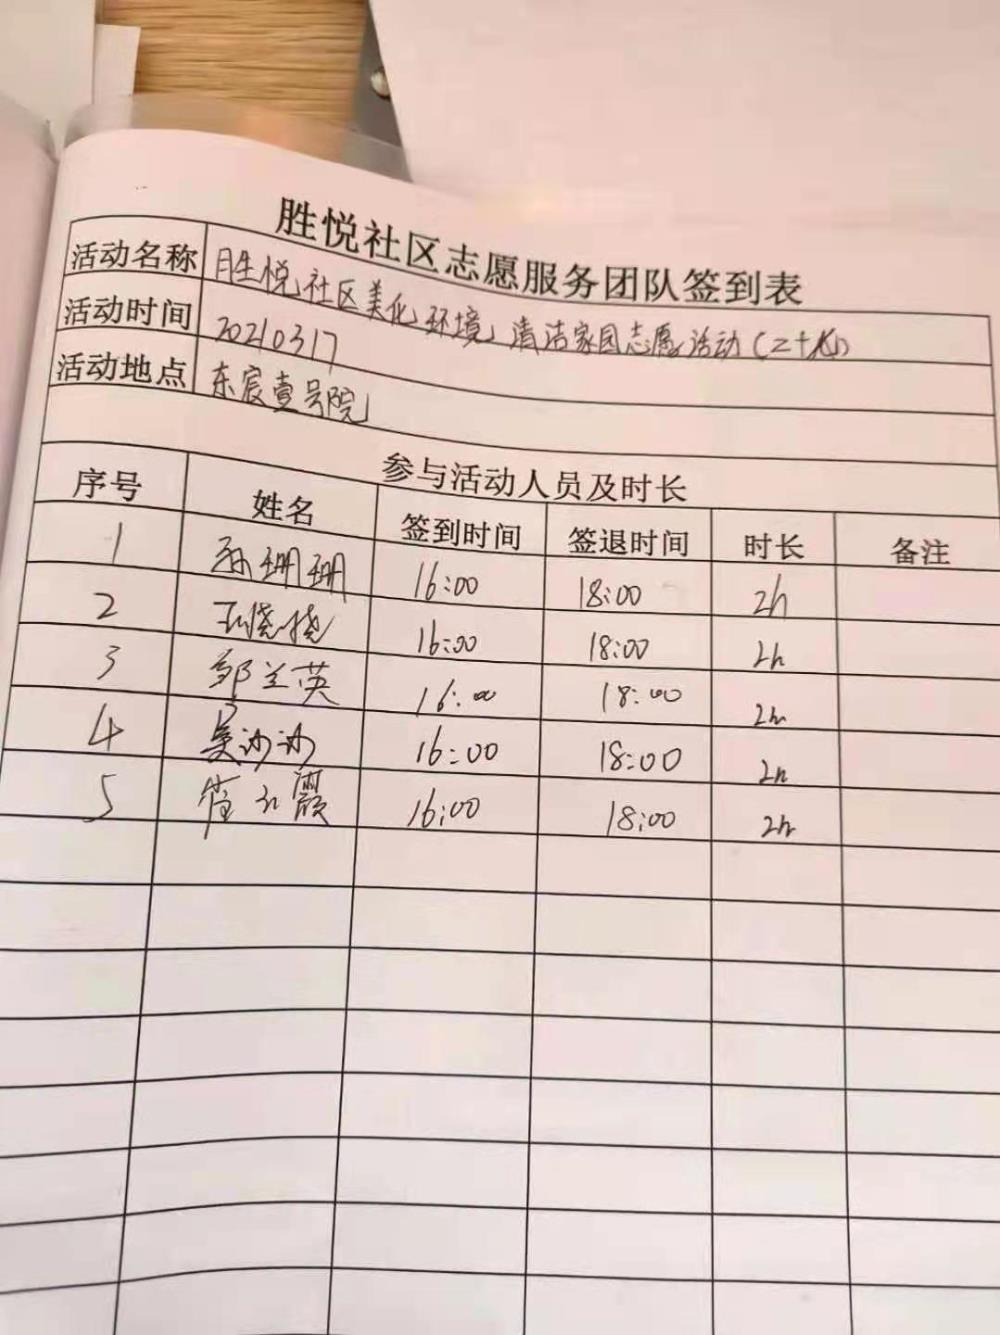 胜悦社区志愿服务团队签到表
活动名称 胜悦社区美化环境,清洁家园志愿活动(二十八)
活动时间 20210317
活动地点 东宸壹号院
参与活动人员及时长
序号 姓名 签到时间 签退时间 时长 备注
1 孙珊珊 16:00 18:00 2h
2 王晓晓 16:00 18:00 2h
3 邹兰英 16:00 18:00 2h
4 吴沙沙 16:00 18:00 2h
5 霞 16:00 18:00 2h